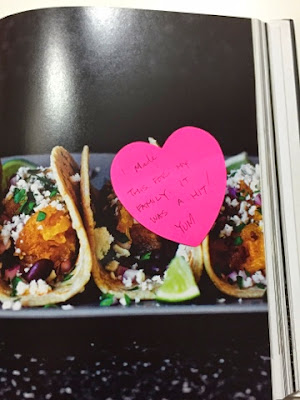 I Made
THIS FOR MY
FAMILY. IT
WAS A HIT!
YUM